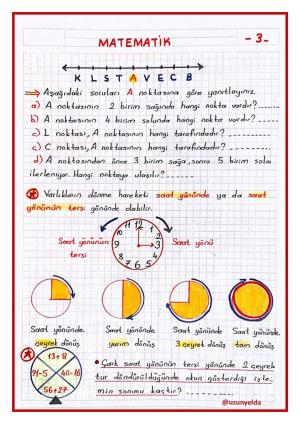 MATEMATİK
- 3 -
K L S T A V E C B
Aşağıdaki soruları A noktasına göre yanıtlayınız.
a) A noktasının 2 birim sağında hangi nokta vardır?
b) A noktasının 4 birim solunda hangi nokta vardır?
c) L noktası, A noktasının hangi tarafındadır?
ç) C noktası, A noktasının hangi tarafındadır?
d) A noktasından önce 3 birim sağa, sonra 5 birim sola
ilerleniyor. Hangi noktaya ulaşılır?
Varlıkların dönme hareketi saat yönünde ya da saat
yönünün tersi yönünde olabilir.
Saat yönünün
tersi
12 1 2 3 4 5 6 7 8 9 10 11
Saat yönü
Saat yönünde
çeyrek dönüş
Saat yönünde
yarım dönüş
Saat yönünde
3 çeyrek dönüş
Saat yönünde
tam dönüş
13+8
91-5
40-16
56+27
Çark saat yönünün tersi yönünde 2 çeyrek
tur döndürüldüğünde okun gösterdiği işle-
min sonucu kaçtır?
@uzunyelda